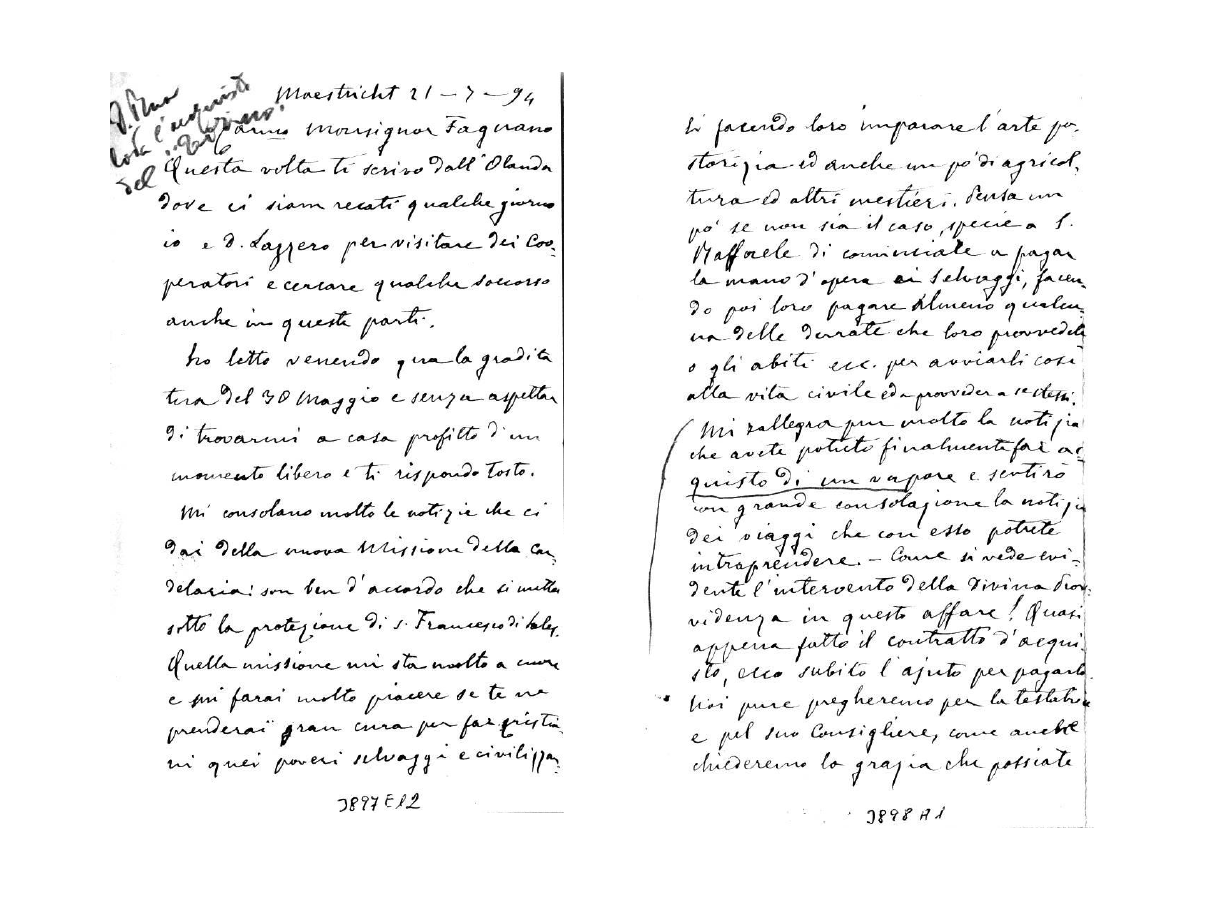 Maestricht 21 – 7 – 94
D. Rua
loda l'acquisto
del "Torino"
Car.mo Monsignor Fagnano
Questa volta ti scrivo dall'Olanda
dove ci siam recati qualche giorno
io e D. Lazzero per visitare dei Coo-
peratori e cercare qualche soccorso
anche in queste parti.
Ho letto venendo qua la gradita
tua del 30 Maggio e senza aspettar
di trovarmi a casa profitto d'un
momento libero e ti rispondo tosto.
Mi consolano molto le notizie che ci
dai della nuova Missione della Can-
delaria: son ben d'accordo che si metta
sotto la protezione di S. Francesco di Sales.
Quella missione mi sta molto a cuore
e mi farai molto piacere se te ne
prenderai gran cura per far cristia-
ni quei poveri selvaggi e civilizzar-
3897 E12
li facendo loro imparare l'arte pa-
storizia ed anche un po' di agricol-
tura ed altri mestieri. Pensa un
po' se non sia il caso, specie a S.
Raffaele di cominciale a pagar
la mano d'opera ai selvaggi, facen-
do poi loro pagare almeno qualcu-
na delle derrate che loro provvedete
o gli abiti ecc. per avviarli così
alla vita civile ed a provveder a se stessi.
Mi rallegra pur molto la notizia
che avete potuto finalmente far ac-
quisto di un vapore e sentirò
con grande consolazione la notizia
dei viaggi che con esso potrete
intraprendere. – Come si vede evi-
dente l'intervento della Divina Prov-
videnza in questo affare! Quasi
appena fatto il contratto d'acqui-
sto, ecco subito l'ajuto per pagarlo.
Noi pure pregheremo per la testatrice
e pel suo Consigliere, come anche
chiederemo la grazia che possiate
3898 A1